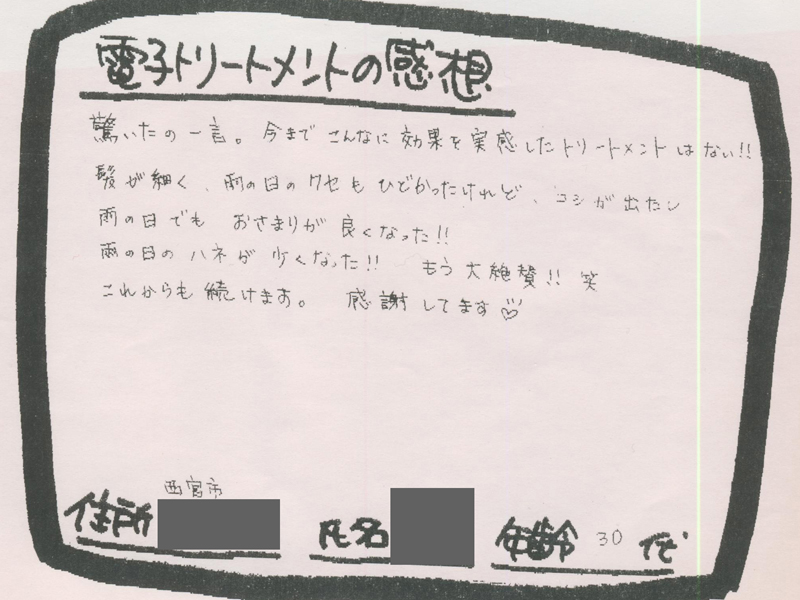 電子トリートメントの感想
驚いたの一言。今までこんなに効果を実感したトリートメントはない!!
髪が細く、雨の日のクセもひどかったけれど、コシが出たし
雨の日でもおさまりが良くなった!!
雨の日のハネが少くなった!! もう大絶賛!! 笑
これからも続けます。 感謝してます♡
西宮市
住所 氏名 年齢 30代